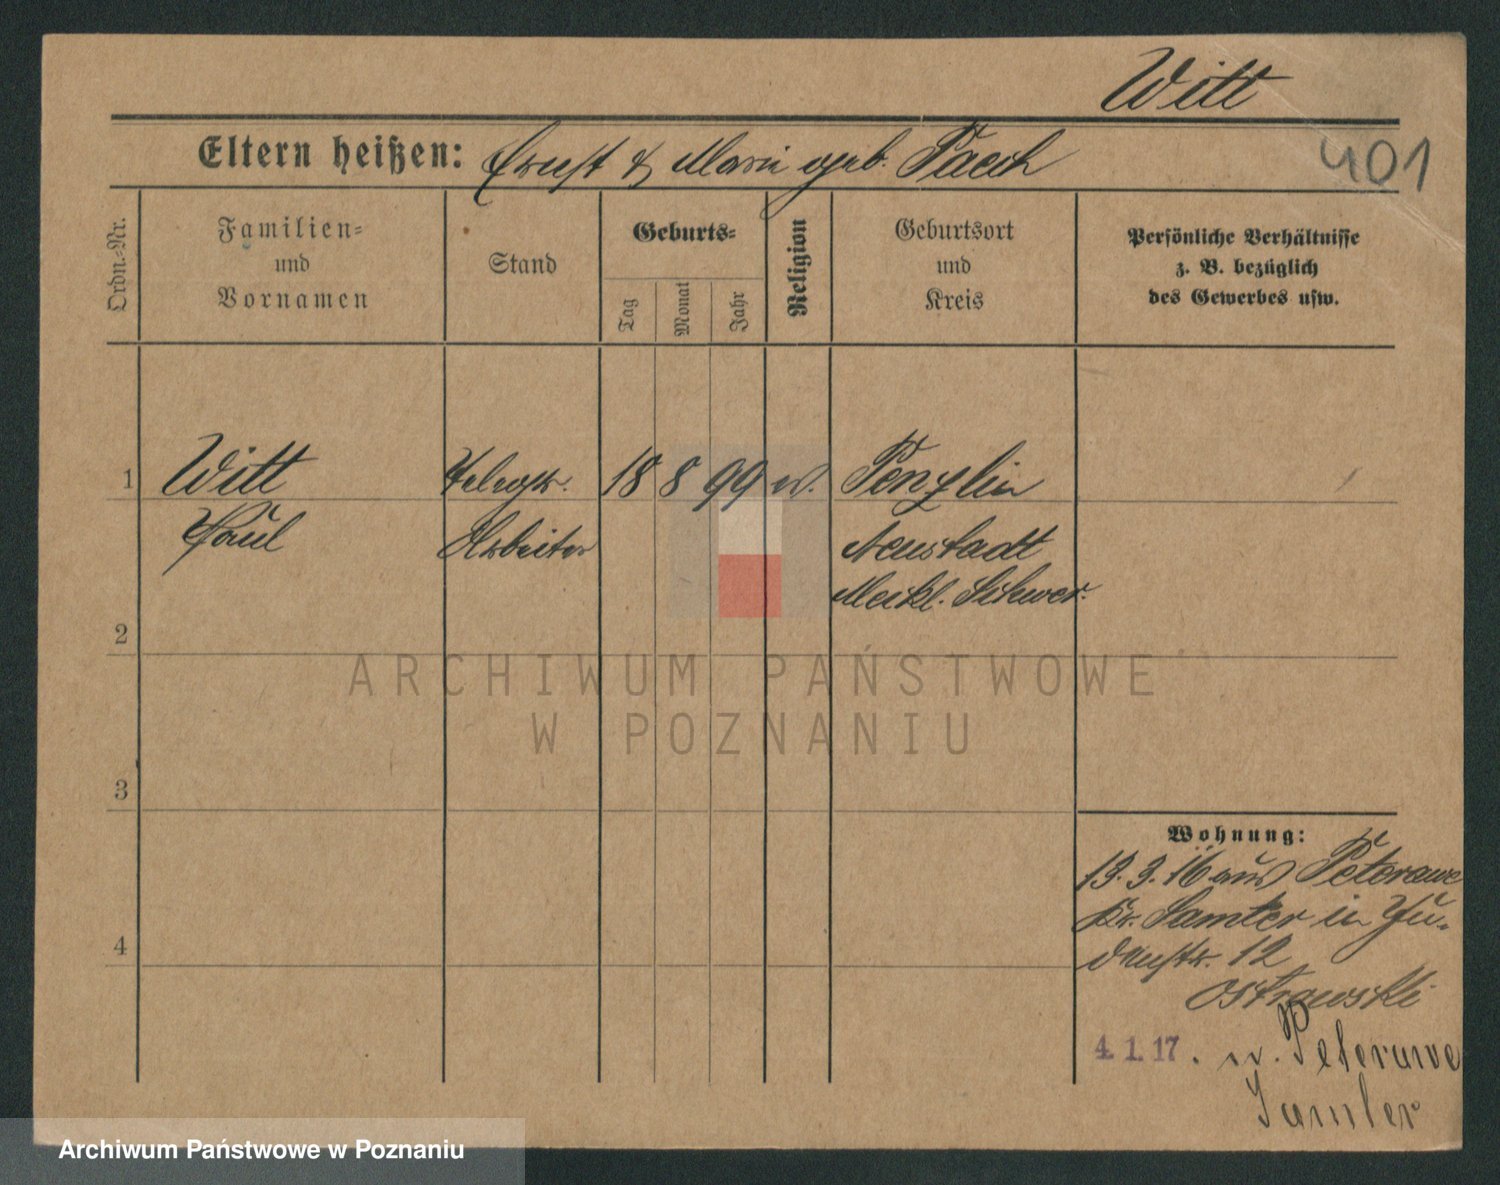 Witt
Eltern heißen: Ernst & Marie geb. Paech
401
Ordn.-Nr.
Familien-
und
Vornamen
Stand
Geburts-
Tag
Monat
Jahr
Religion
Geburtsort
und
Kreis
Persönliche Verhältnisse
z. B. bezüglich
des Gewerbes usw.
1
Witt
Telegr.
18
8
99
ev.
Penzlin
Paul
Arbeiter
Neustadt
Meckl. Schwer.
2
ARCHIWUM PAŃSTWOWE
W POZNANIU
3
Wohnung:
13.3.16 aus Peterawe
Kr. Samter in Ju-
4
denstr. 12
Ostrowski
4.1.17. n. Peterawe
Samter
Archiwum Państwowe w Poznaniu